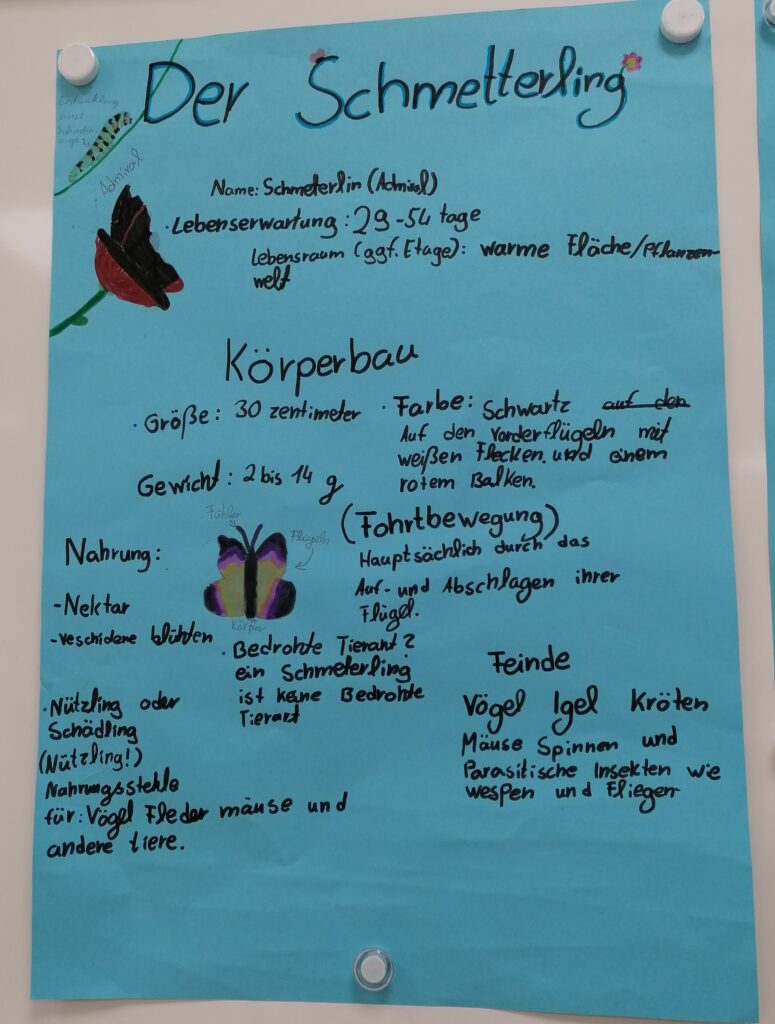 Der Schmetterling
Entwicklung
eines
Admiral
Name: Schmeterlin (Admiral)
· Lebenserwartung: 29-54 tage
Lebensraum (ggf. Etage): warme Fläche/Pflanzen-
welt
Körperbau
· Größe: 30 zentimeter
Gewicht: 2 bis 14 g
· Farbe: Schwartz auf den
Auf den Vorderflügeln mit
weißen Flecken. und einem
rotem Balken.
Fühler
Flügeln
Körper
(Fohrtbewegung)
Hauptsächlich durch das
Auf- und Abschlagen ihrer
Flügel.
Nahrung:
-Nektar
-veschidene blühten
· Bedrohte Tierart?
ein Schmeterling
ist keine Bedrohte
Tierart
Feinde
Vögel Igel Kröten
Mäuse Spinnen und
Parasitische Insekten wie
wespen und Fliegen
· Nützling oder
Schädling
(Nützling!)
Nahrungsstehle
für: Vögel Fleder mäuse und
andere tiere.